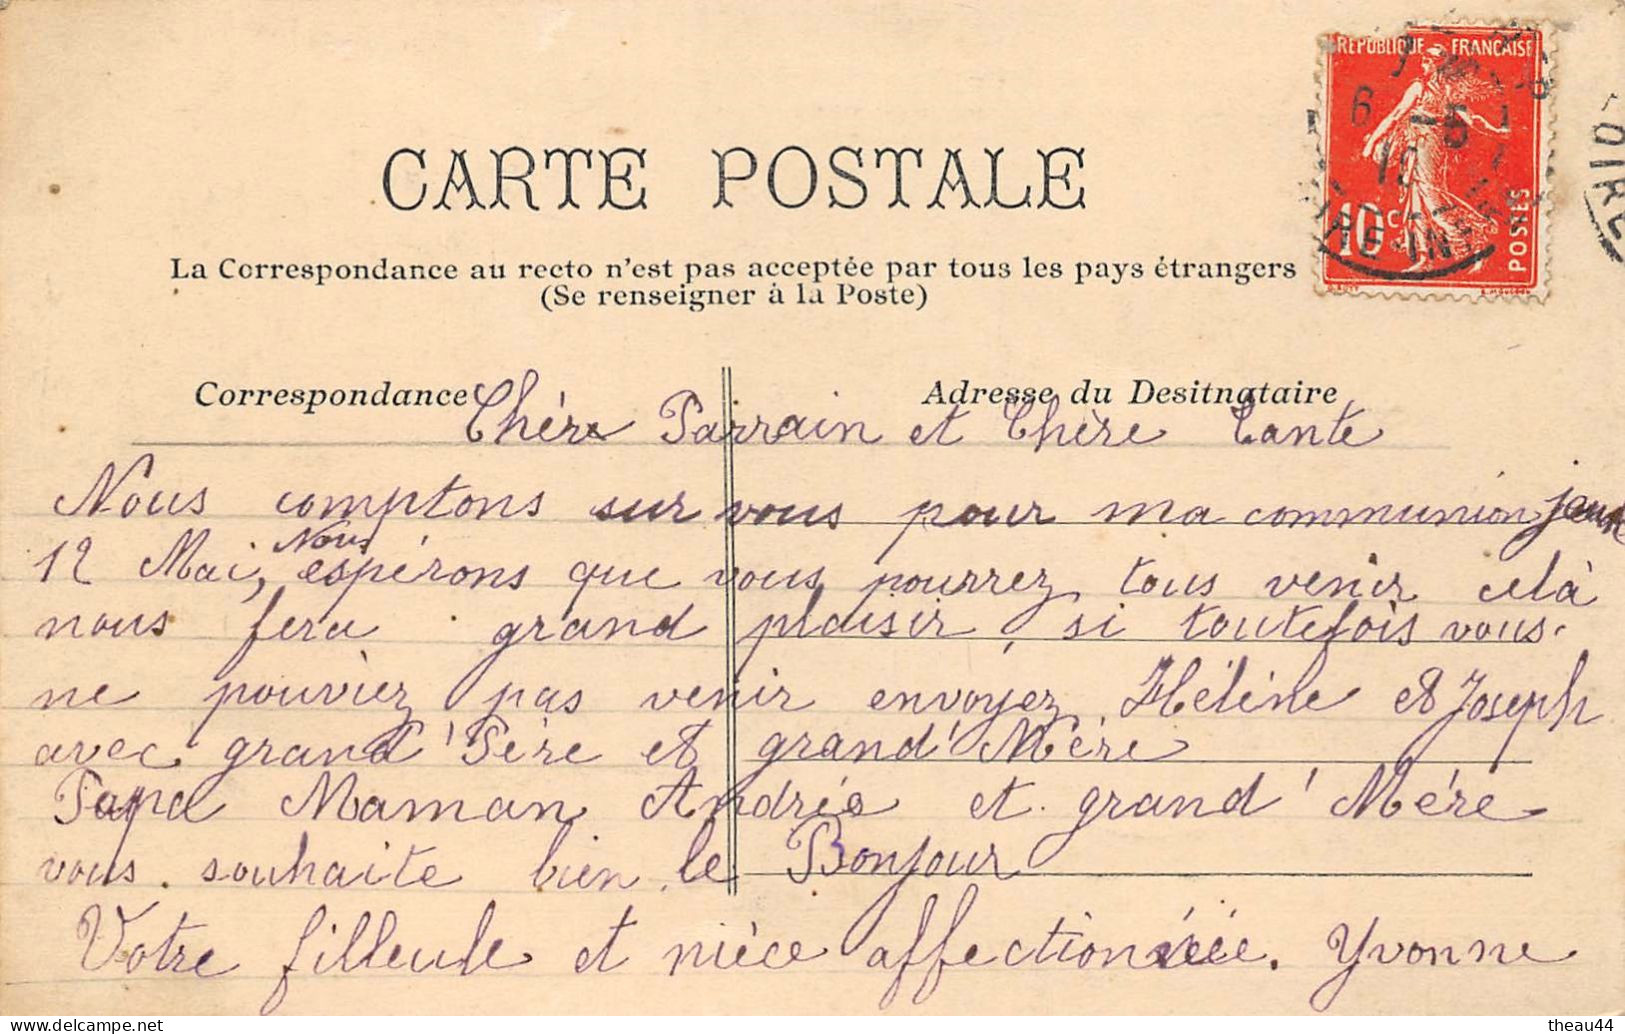 CARTE POSTALE
RÉPUBLIQUE FRANÇAISE
6 -5
10
10c
POSTES
OIRE
La Correspondance au recto n'est pas acceptée par tous les pays étrangers
(Se renseigner à la Poste)
Correspondance
Adresse du Desitnataire
Chère Parrain et Chère Tante
Nous comptons sur vous pour ma communion jeudi
12 Mai, Nous espérons que vous pourrez tous venir celà
nous fera grand plaisir, si toutefois vous
ne pouviez pas venir envoyez Hélène et Joseph
avec grand'Père et grand'Mère
Papa Maman Andrée et grand'Mère
vous souhaite bien le Bonjour
Votre filleule et nièce affectionnée. Yvonne
theau44